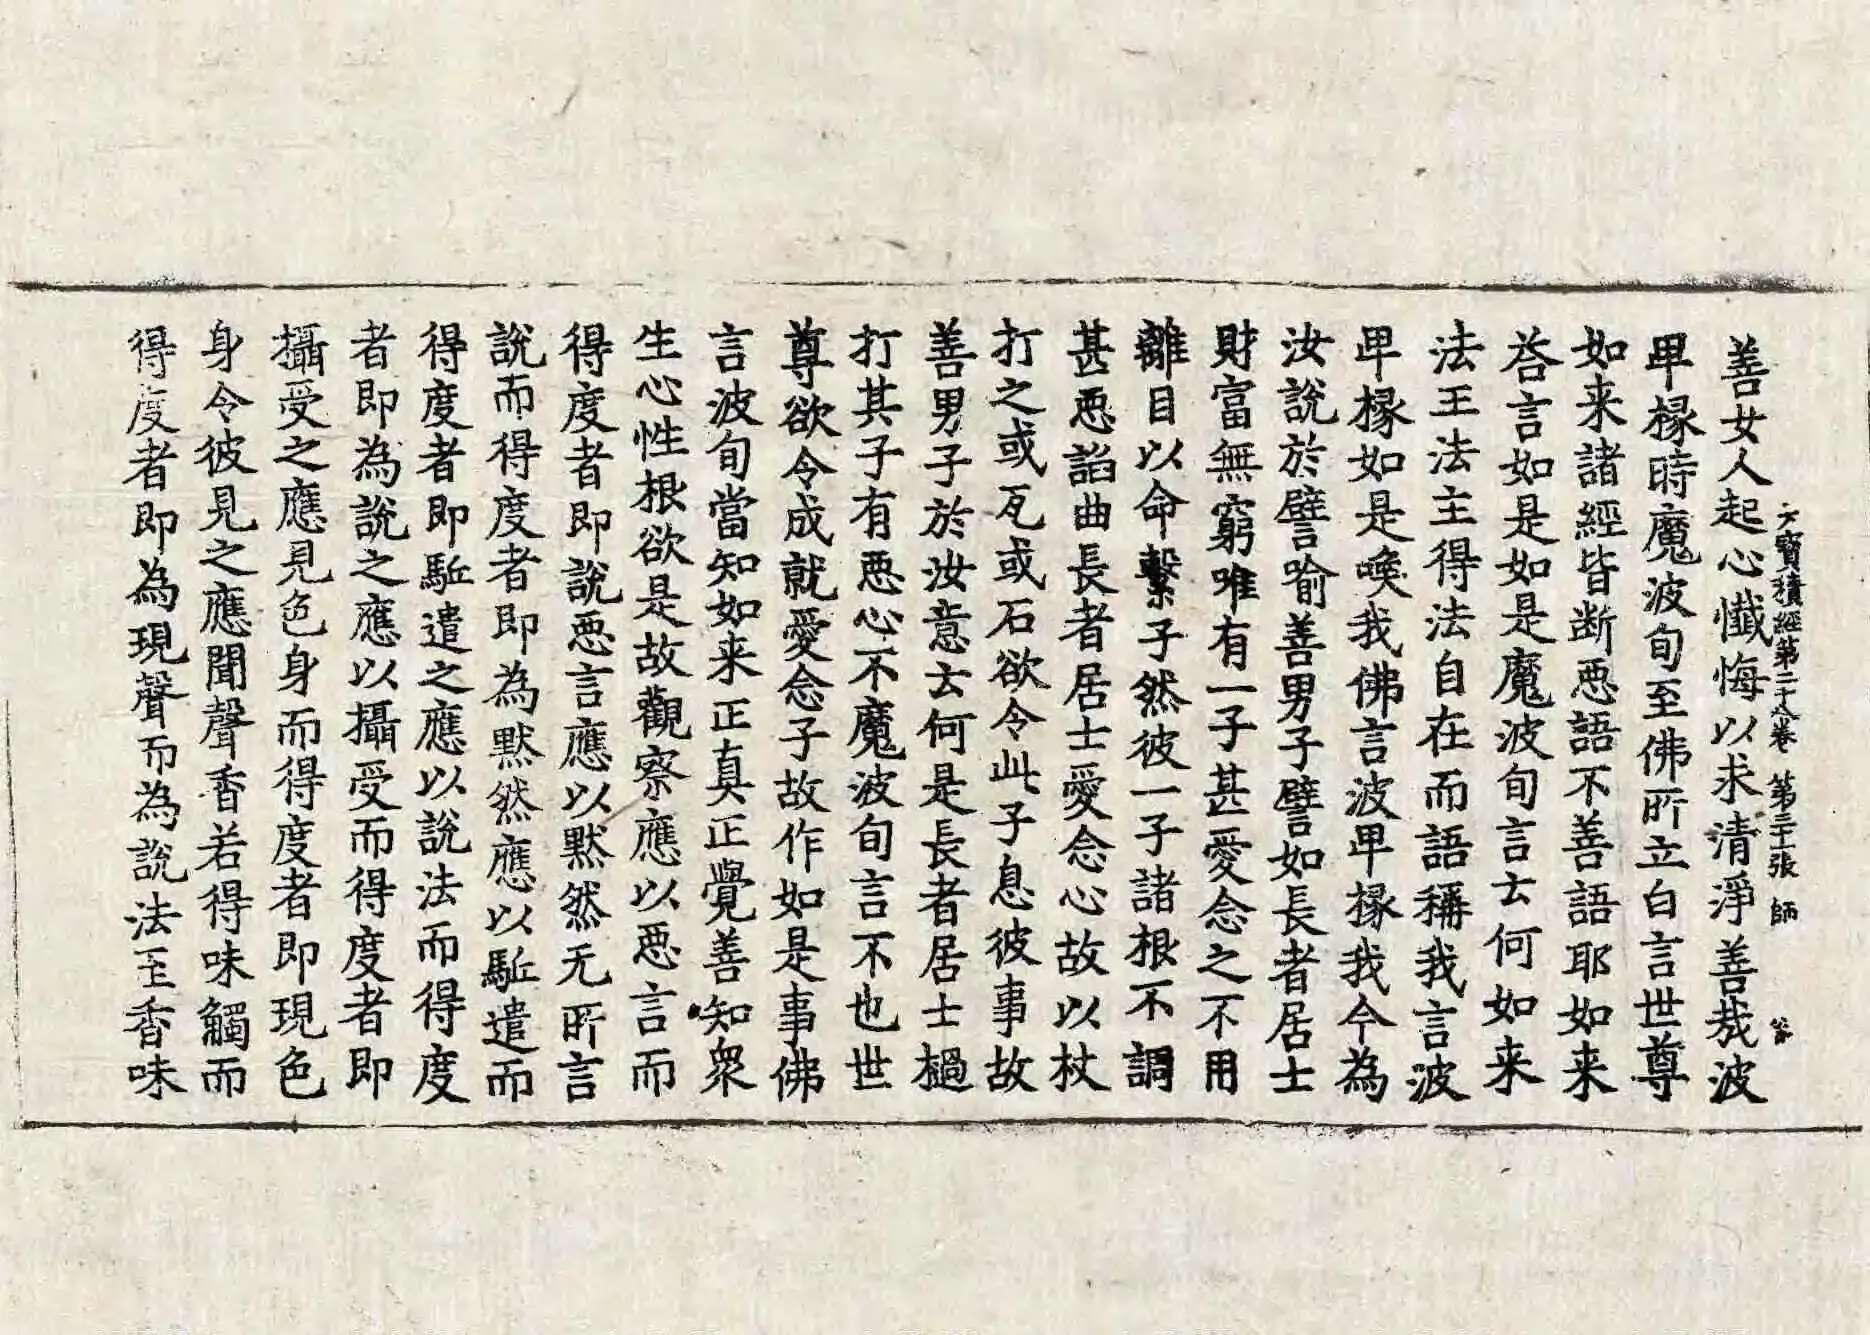 善女人起心懺悔以求清淨善哉波
大寶積經第二十八卷 第三十一張 師
卑掾時魔波旬至佛所立白言世尊
如来諸經皆断惡語不善語耶如来
荅言如是如是魔波旬言云何如来
法王法主得法自在而語稱我言波
卑掾如是喚我佛言波卑掾我今為
汝說於譬喻善男子譬如長者居士
財富無窮唯有一子甚愛念之不用
離目以命繫子然彼一子諸根不調
甚惡諂曲長者居士愛念心故以杖
打之或瓦或石欲令此子息彼事故
善男子於汝意云何是長者居士檛
打其子有惡心不魔波旬言不也世
尊欲令成就愛念子故作如是事佛
言波旬當知如来正真正覺善知衆
生心性根欲是故觀察應以惡言而
得度者即說惡言應以默然无所言
說而得度者即為默然應以駈遣而
得度者即駈遣之應以說法而得度
者即為說之應以攝受而得度者即
攝受之應見色身而得度者即現色
身令彼見之應聞聲香若得味觸而
得度者即為現聲而為說法至香味